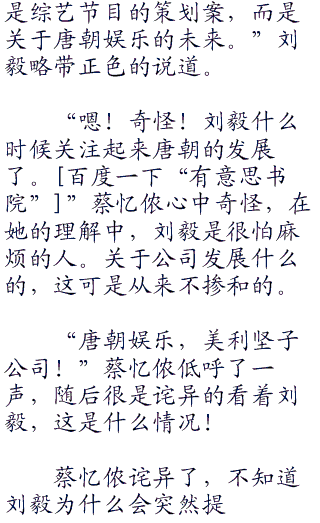 是综艺节目的策划案，而是
关于唐朝娱乐的未来。”刘
毅略带正色的说道。
“嗯！奇怪！刘毅什么
时候关注起来唐朝的发展
了。[百度一下“有意思书
院”]”蔡忆侬心中奇怪，在
她的理解中，刘毅是很怕麻
烦的人。关于公司发展什么
的，这可是从来不掺和的。
“唐朝娱乐，美利坚子
公司！”蔡忆侬低呼了一
声，随后很是诧异的看着刘
毅，这是什么情况！
蔡忆侬诧异了，不知道
刘毅为什么会突然提